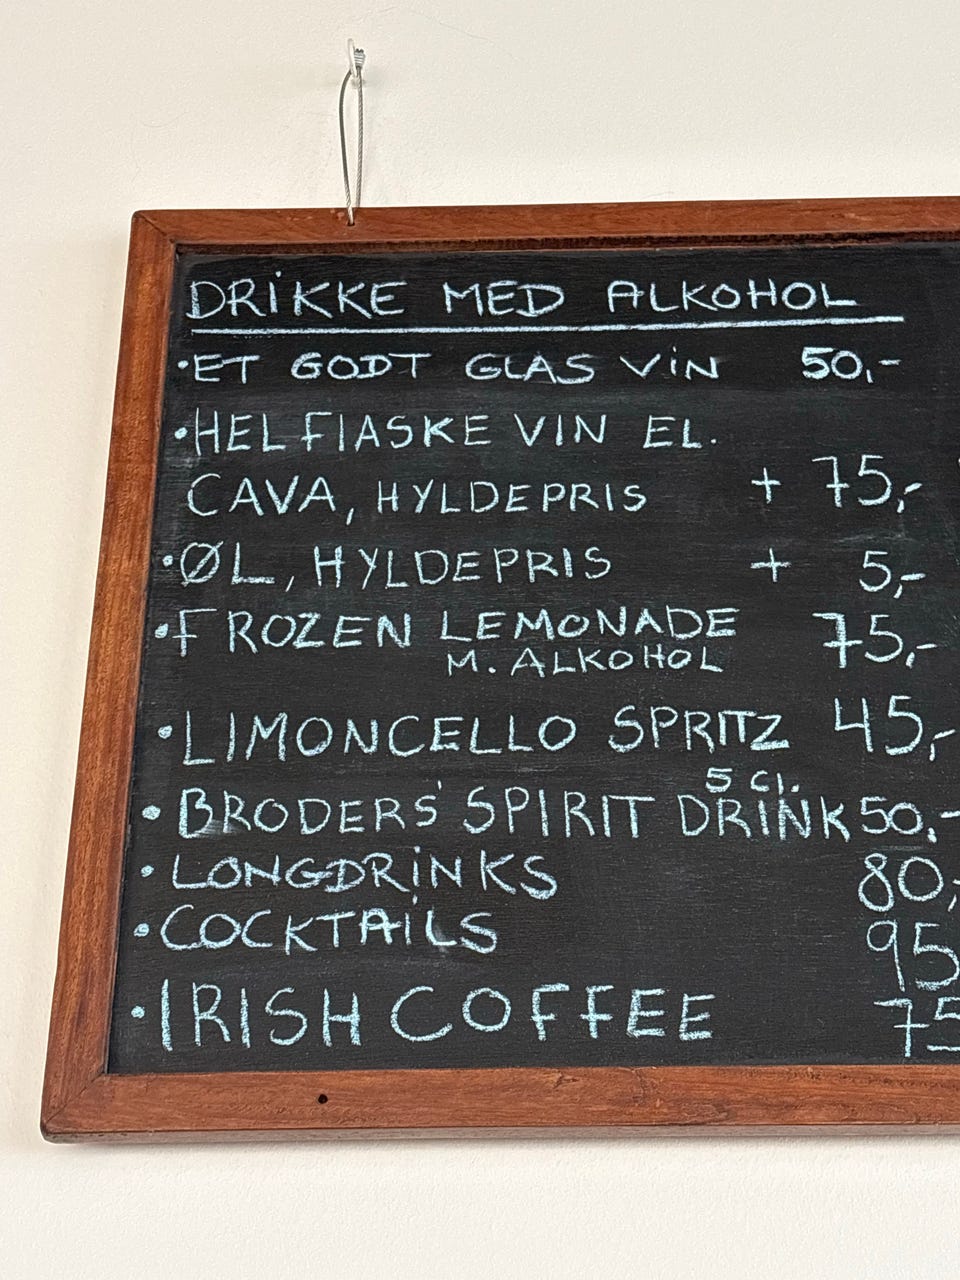 DRIKKE MED ALKOHOL
•ET GODT GLAS VIN 50,-
•HEL FIASKE VIN EL.
CAVA, HYLDEPRIS + 75,-
•ØL, HYLDEPRIS + 5,-
•FROZEN LEMONADE 75,-
M. ALKOHOL
•LIMONCELLO SPRITZ 45,-
5 CL.
•BRODERS' SPIRIT DRINK 50,-
•LONGDRINKS 80,-
•COCKTAILS 95
•IRISH COFFEE 75